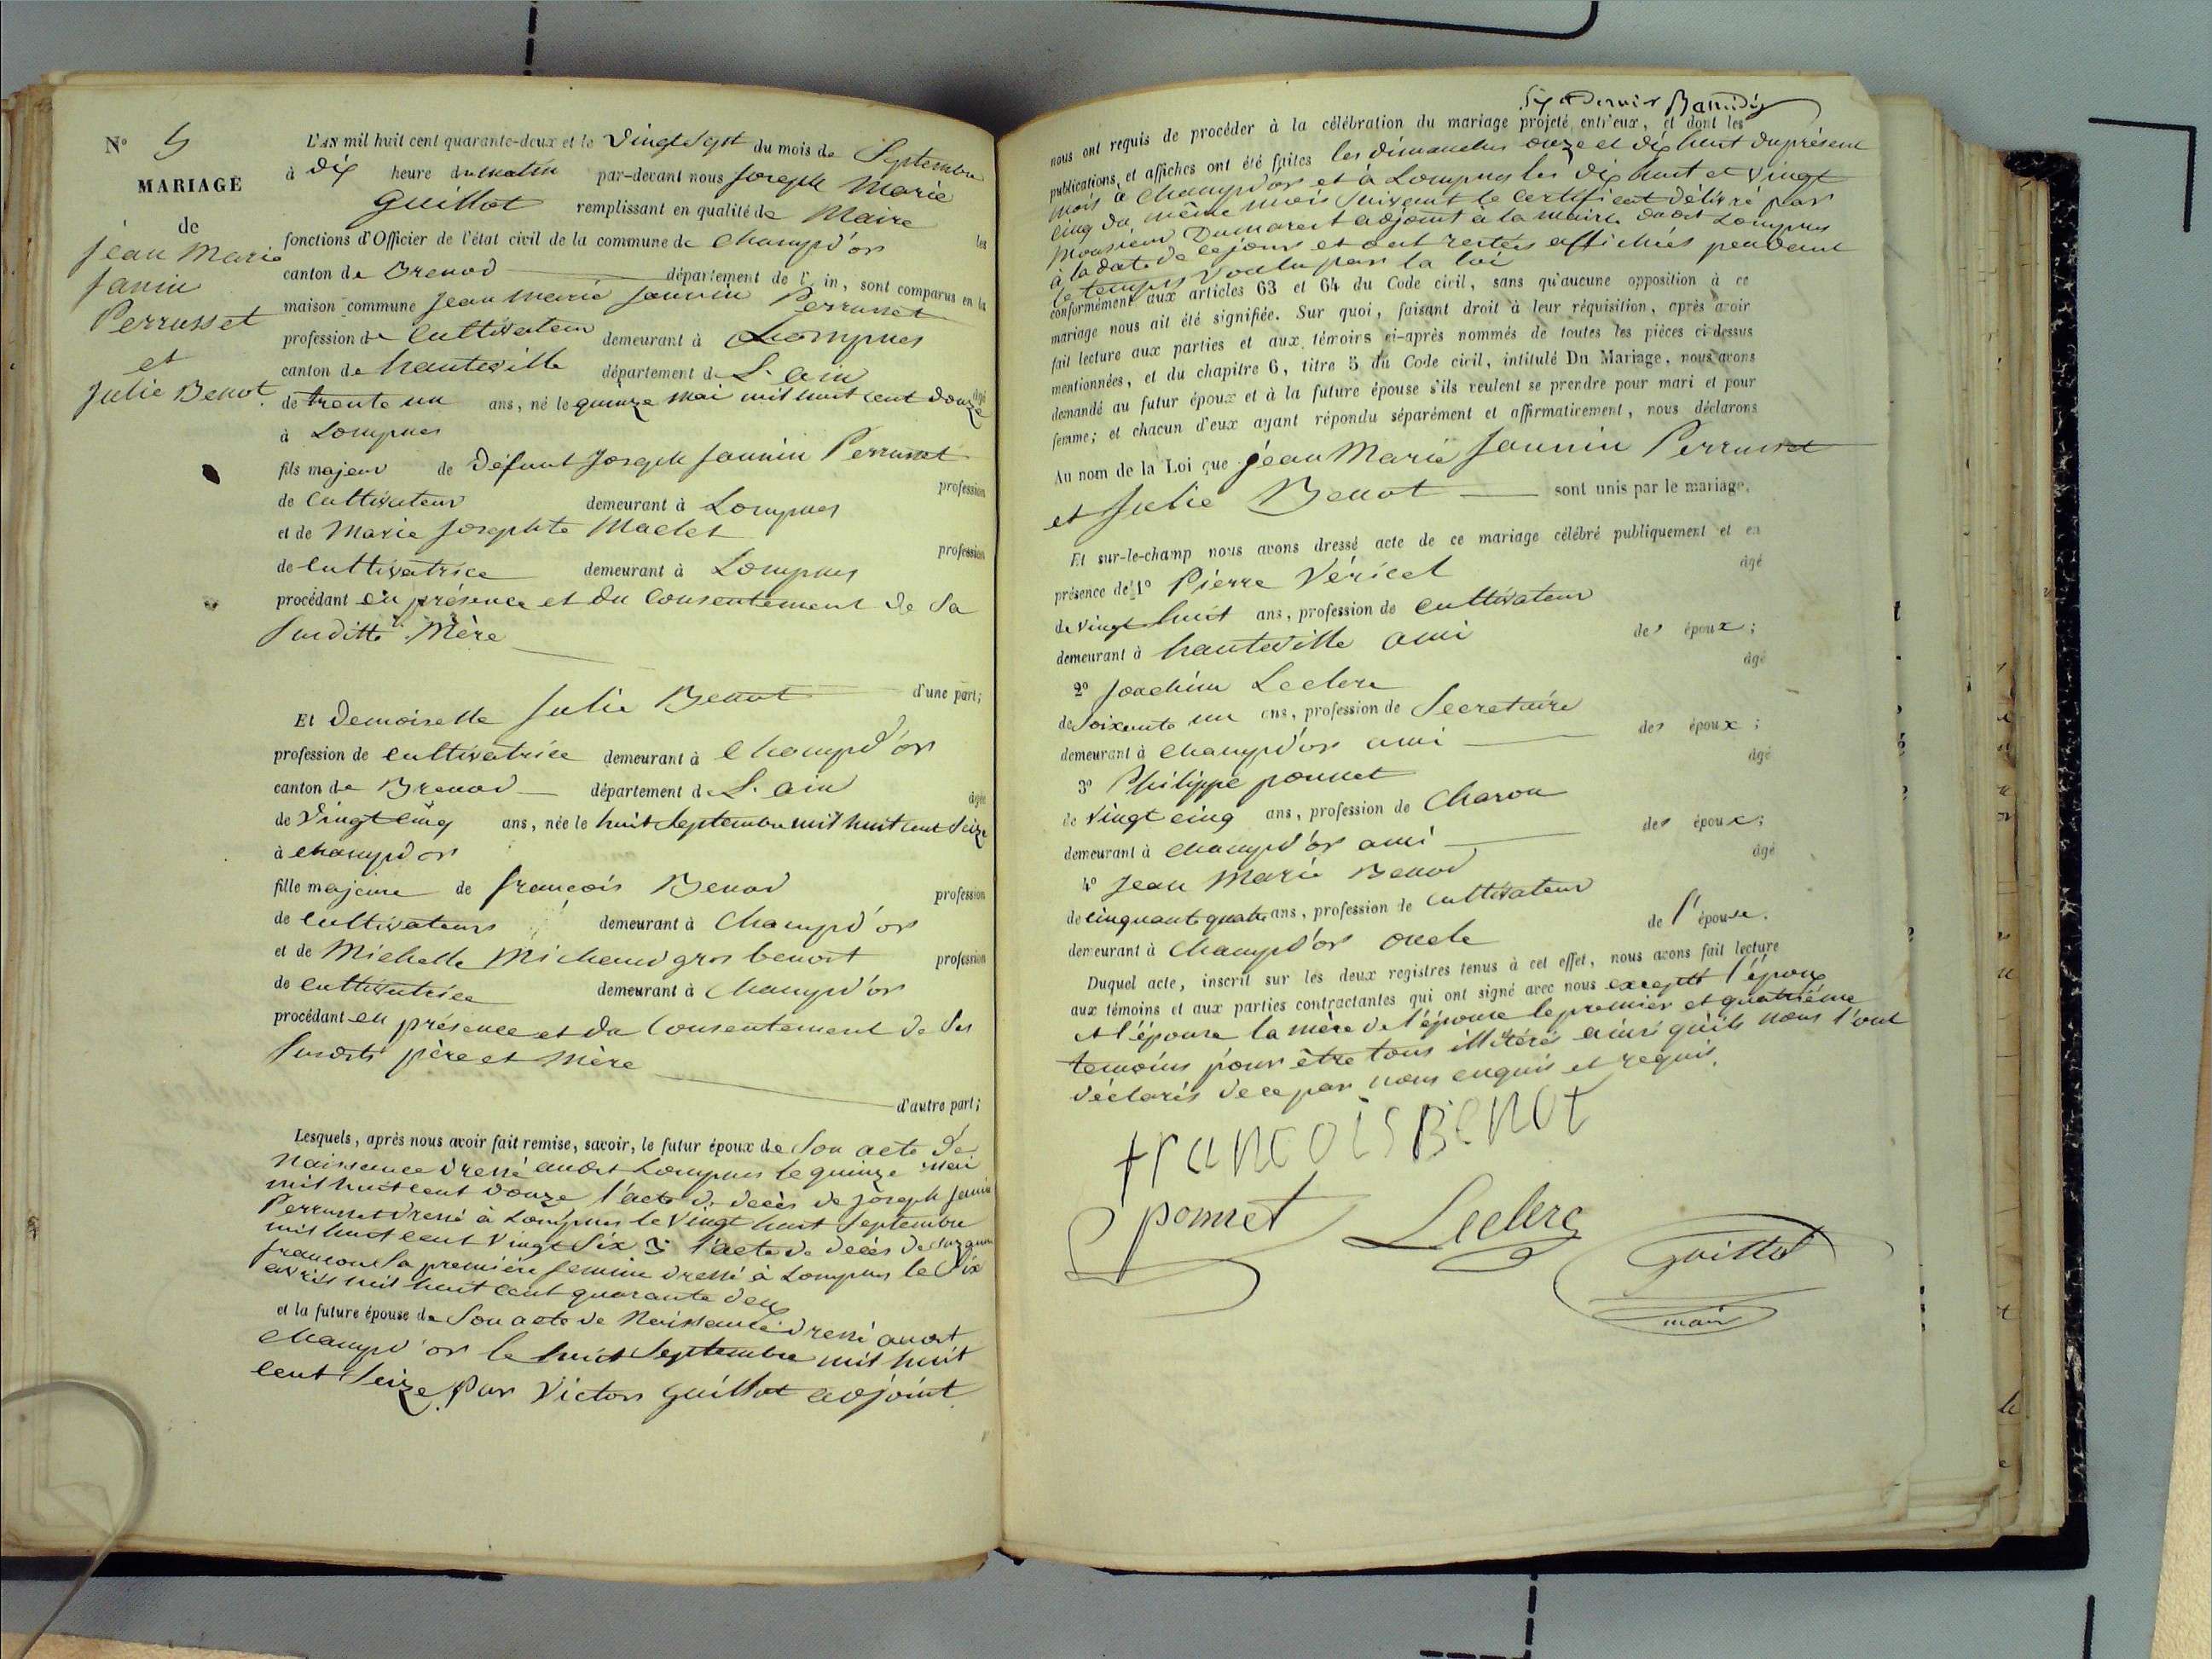 N° 5
MARIAGE
de
jean Marie
Janin
Perrusset
et
Julie Benot.
L'AN mil huit cent quarante-deux et le Vingt Sept du mois de Septembre
à dix heure du matin par-devant nous Joseph Marie
Guillot remplissant en qualité de Maire les
fonctions d'Officier de l'état civil de la commune de Champd'or
canton de Brenod département de l'Ain, sont comparus en la
maison commune Jean marie Jannin Perrusset
profession de Cultivateur demeurant à Lompnes
canton de hauteville département de L'ain âgé
de trente un ans, né le quinze Mai mil huit cent douze
à Lompnes
fils majeur de Défunt Joseph Jannin Perrusset profession
de Cultivateur demeurant à Lompnes
et de Marie Josephte Maclet profession
de Cultivatrice demeurant à Lompnes
procédant en présence et du Consentement de Sa
Susditte Mère
d'une part;
Et Demoiselle Julie Benot
profession de cultivatrice demeurant à Champd'or
canton de Brenod département de L'ain âgée
de Vingt Cinq ans, née le huit Septembre mil huit cent Seize
à Champd'or
fille majeure de françois Benod profession
de Cultivateurs demeurant à Champd'or
et de Michelle Michaud gros benoit profession
de Cultivatrice demeurant à Champd'or
procédant en présence et du Consentement de Ses
Susdits père et Mère
d'autre part;
Lesquels, après nous avoir fait remise, savoir, le futur époux de Son acte de
Naissance dressé audit Lompnes le quinze Mai
mil huit cent douze l'acte de décès de Joseph Janin
Perrusset dressé à Lompnes le Vingt huit Septembre
mil huit cent Vingt Six 3° l'acte de décès de
Sa première femme dressé à Lompnes le Six
avril mil huit cent quarante deux
et la future épouse de Son acte de Naissance dressé audit
Champd'or le huit Septembre mil huit
cent Seize par Victor Guillot adjoint.
nous ont requis de procéder à la célébration du mariage projeté entr'eux, et dont les
publications et affiches ont été faites les dimanches onze et dix huit du présent
mois à Champd'or et à Lompnes les dix huit et Vingt
cinq du même mois Suivant le Certificat délivré par
Monsieur Dumarest adjoint à la mairie dudit Lompnes
à la date de ce jour et ont restées affichées pendant
le temps Voulu par la loi
conformément aux articles 63 et 64 du Code civil, sans qu'aucune opposition à ce
mariage nous ait été signifiée. Sur quoi, faisant droit à leur réquisition, après avoir
fait lecture aux parties et aux témoins ci-après nommés de toutes les pièces ci-dessus
mentionnées, et du chapitre 6, titre 5 du Code civil, intitulé Du Mariage, nous avons
demandé au futur époux et à la future épouse s'ils veulent se prendre pour mari et pour
femme; et chacun d'eux ayant répondu séparément et affirmativement, nous déclarons
Au nom de la Loi que jean Marie Jannin Perrusset
et Julie Benot sont unis par le mariage.
Et sur-le-champ nous avons dressé acte de ce mariage célébré publiquement et en
présence de 1° Pierre Véricel âgé
de Vingt huit ans, profession de Cultivateur
demeurant à hauteville ami des époux;
2° Joachim Leclerc âgé
de Soixante un ans, profession de Secretaire
demeurant à Champd'or ami des époux;
3° Philippe ponnet âgé
de Vingt cinq ans, profession de Charon
demeurant à Champd'or ami des époux;
4° Jean Marie Benod âgé
de cinquante quatre ans, profession de Cultivateur
demeurant à Champd'or oncle de l'épouse.
Duquel acte, inscrit sur les deux registres tenus à cet effet, nous avons fait lecture
aux témoins et aux parties contractantes qui ont signé avec nous excepté l'époux
et l'épouse la mère de l'épouse le premier et quatrième
temoins pour être tous illitérés ainsi qu'ils nous l'ont
déclarés de ce par nous enquis et requis.
francoisBenot
ponnet Leclerc Guillot
maire